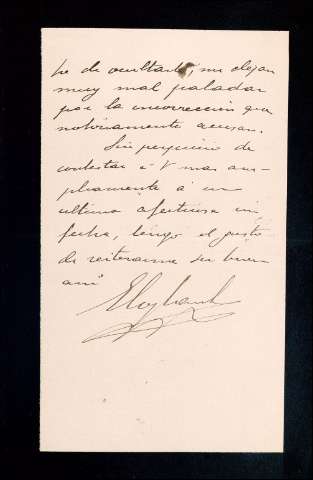 he de ocultarlo, me dejan
muy mal paladar
por la incorrección que
notoriamente acusan.
Sin perjuicio de
contestar á V mas am-
pliamente á su
ultima afectuosa sin
fecha, tengo el gusto
de reiterarme su buen
ami